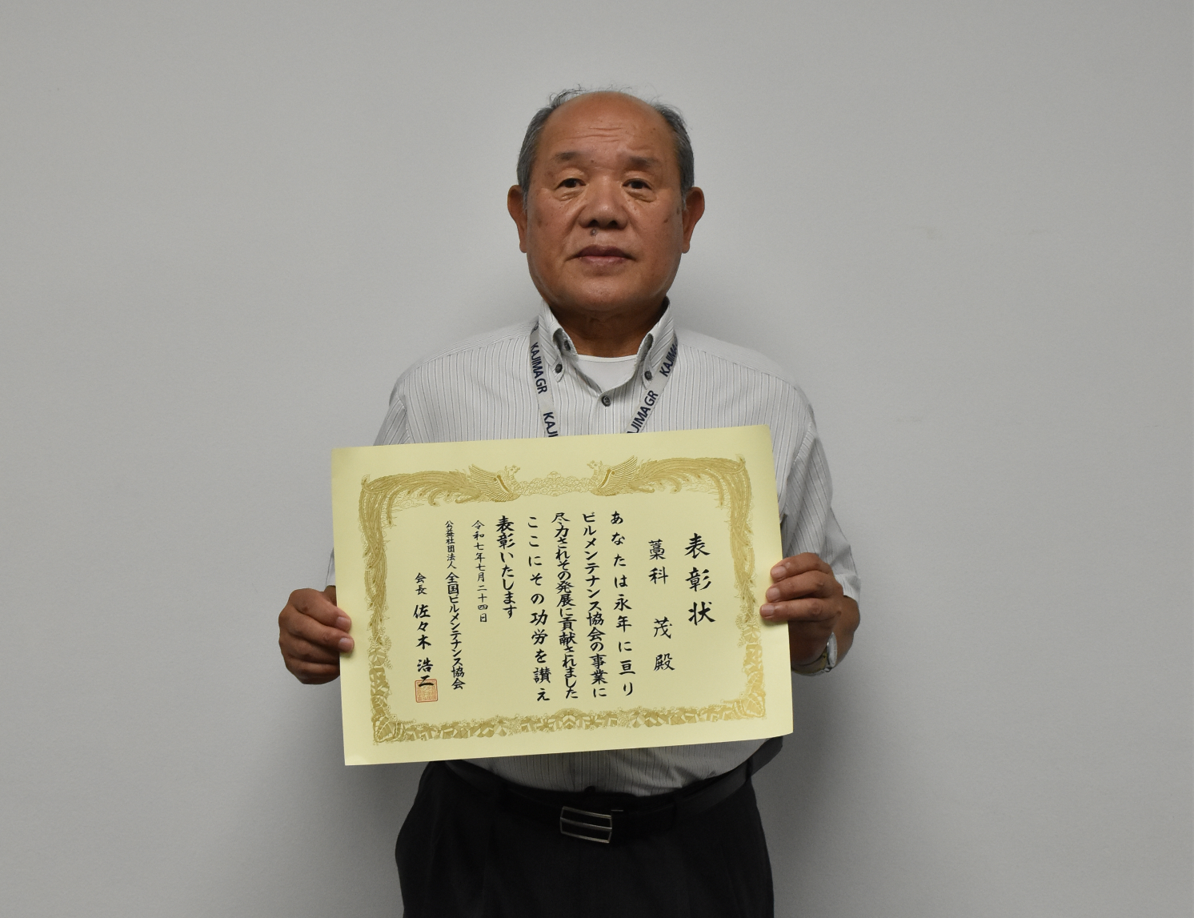 表彰状
藁科 茂 殿
あなたは永年に亘り
ビルメンテナンス協会の事業に
尽力されその発展に貢献されました
ここにその功労を讃え
表彰いたします
令和七年七月二十四日
公益社団法人 全国ビルメンテナンス協会
会長 佐々木 浩二
KAJIMA GR
KAJI
KAJIMA GR
KA